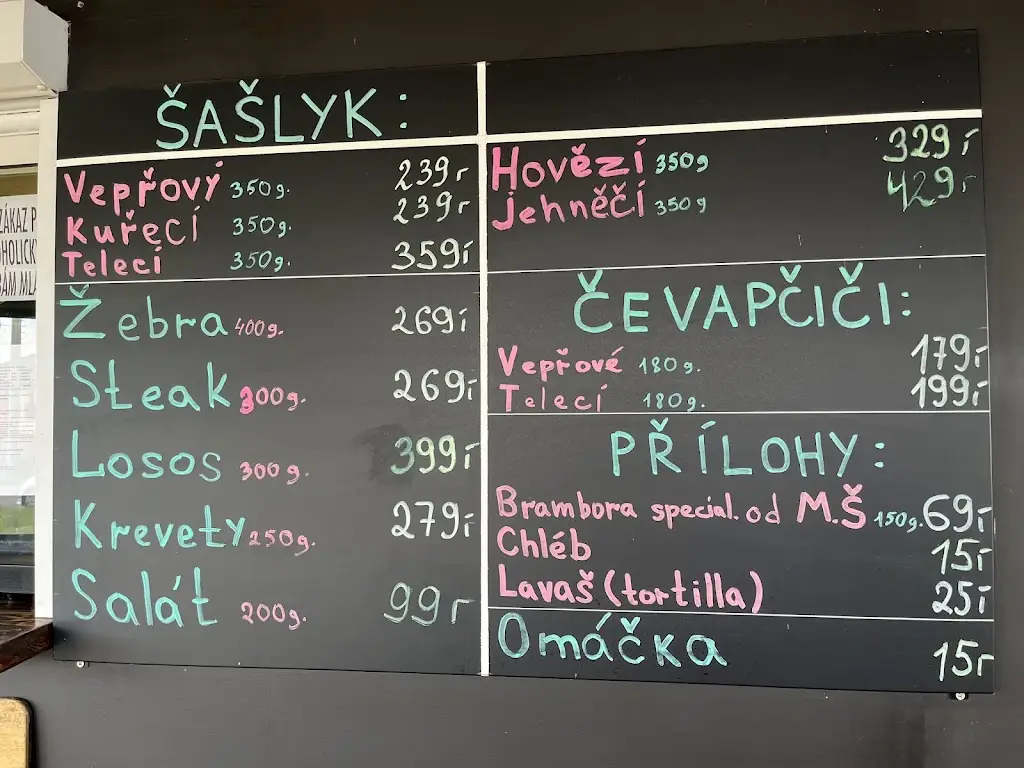 ŠAŠLYK:
Vepřový 350g. 239,-
Kuřecí 350g. 239,-
Telecí 350g. 359,-
Žebra 400g. 269,-
Steak 300g. 269,-
Losos 300g. 399,-
Krevety 250g. 279,-
Salát 200g. 99,-
Hovězí 350g 329,-
Jehněčí 350g 429,-
ČEVAPČIČI:
Vepřové 180g. 179,-
Telecí 180g. 199,-
PŘÍLOHY:
Brambora special. od M.Š 150g. 69,-
Chléb 15,-
Lavaš (tortilla) 25,-
Omáčka 15,-
ZÁKAZ P